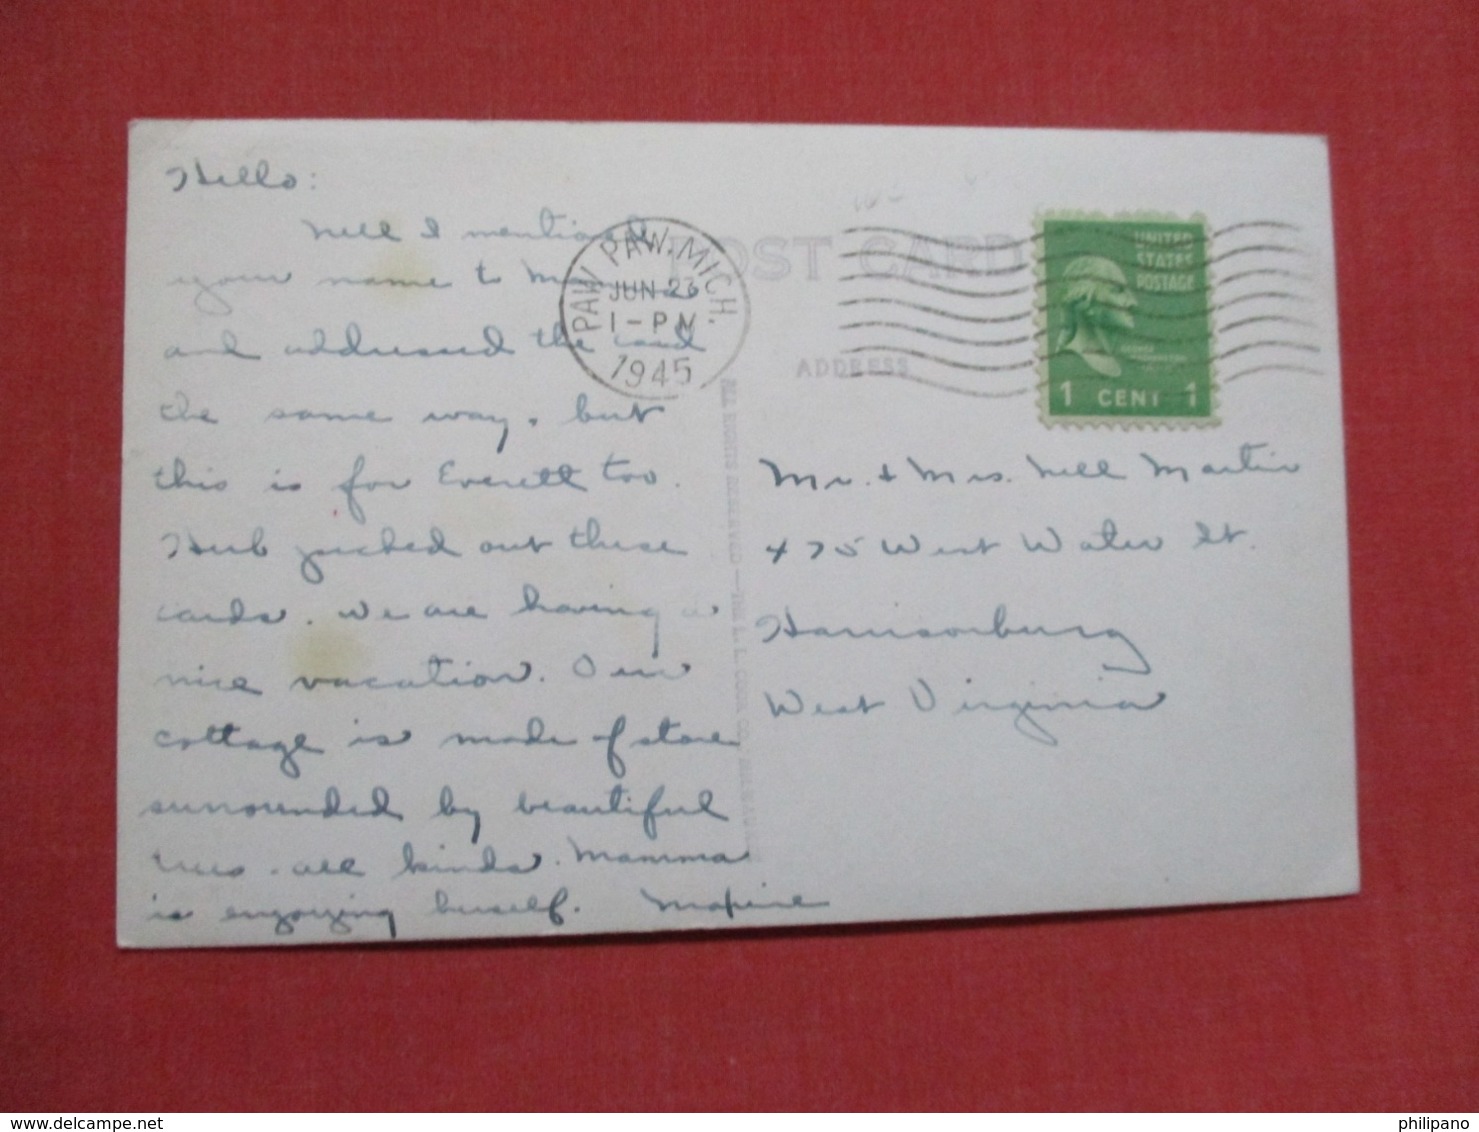 Hello:
Nell I mentioned
your name to
and addressed the card
the same way, but
this is for Everett too.
Herb picked out these
cards. We are having a
nice vacation. Our
cottage is made of stone
surrounded by beautiful
trees. all kinds. Mamma
is enjoying herself.
PAW PAW, MICH.
JUN 23
1-PM
1945
POST CARD
ADDRESS
UNITED
STATES
POSTAGE
1 CENT 1
Mr. & Mrs. Nell Martin
475 West Water St.
Harrisonburg
West Virginia
ALL RIGHTS RESERVED
delcampe.net
philipano